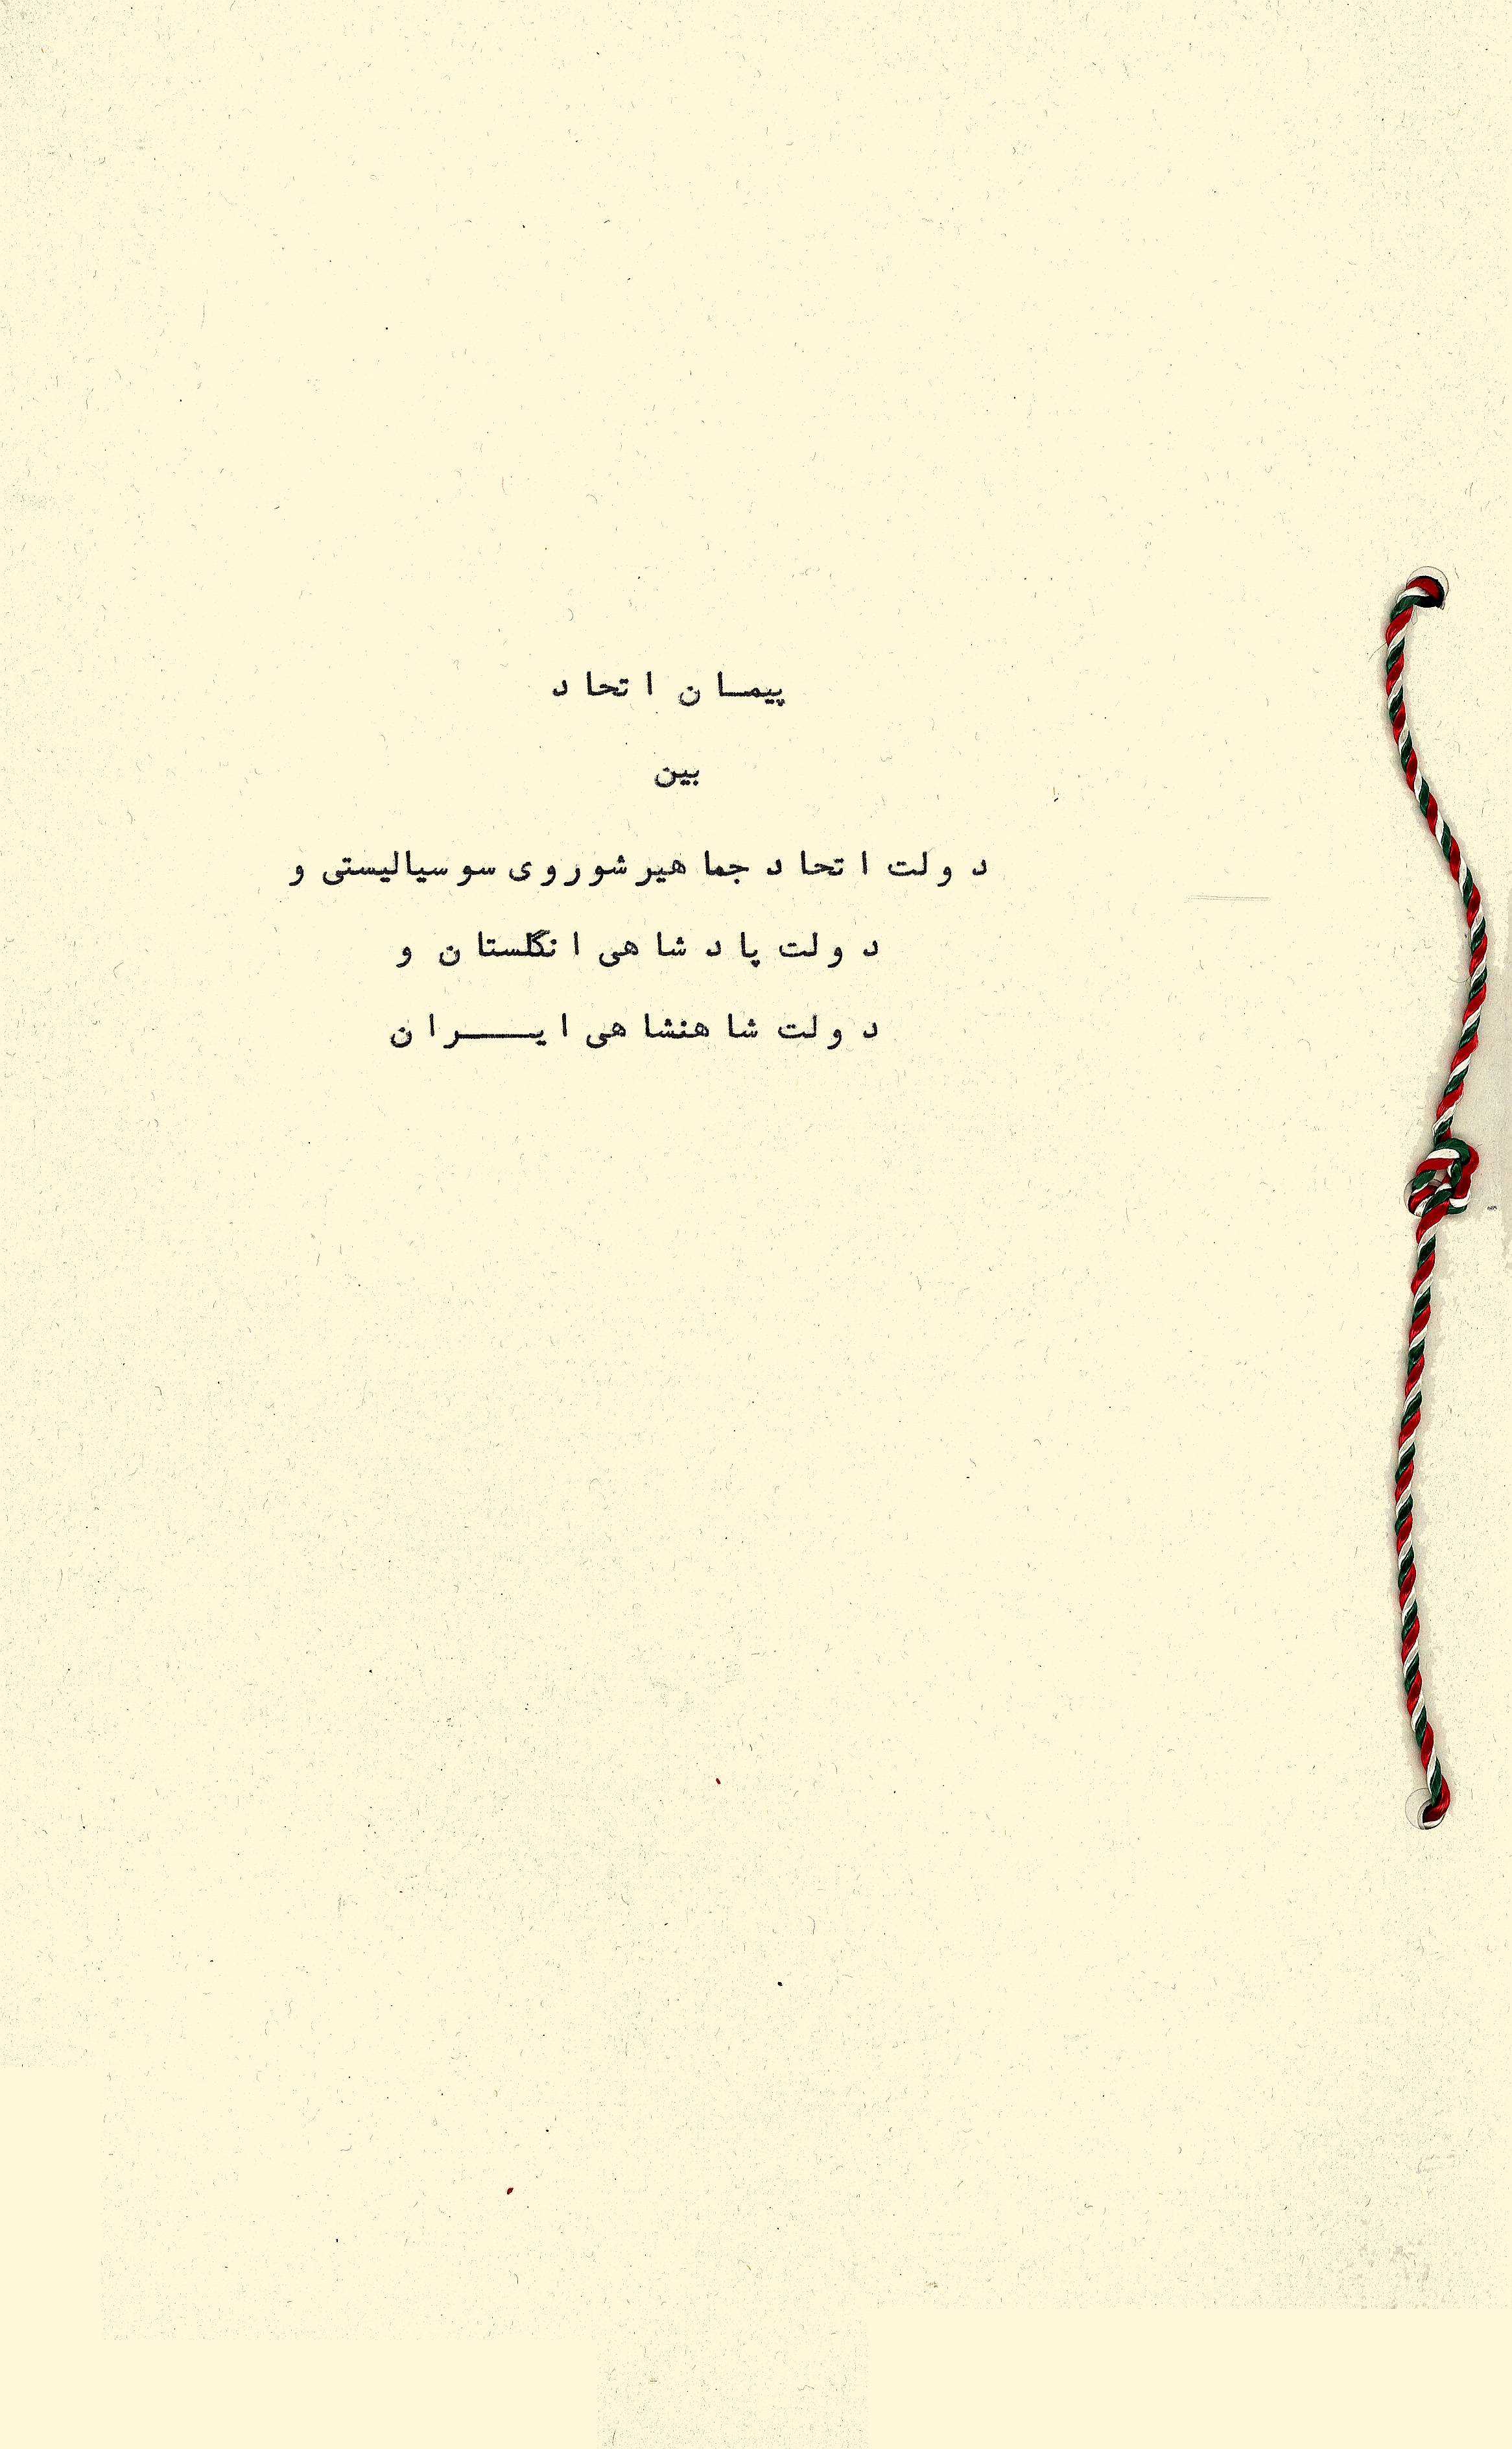 پیمان اتحاد
بین
دولت اتحاد جماهیر شوروی سوسیالیستی و
دولت پادشاهی انگلستان و
دولت شاهنشاهی ایران